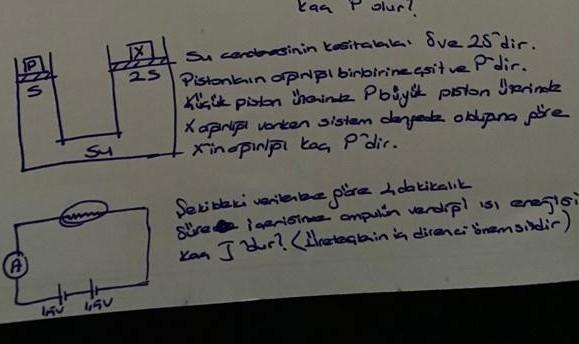 kaç P olur?
P
S
X
2S
Su
Su cenderesinin kesitalanları S ve 2S'dir.
Pistonların ağırlığı birbirine eşit ve P'dir.
Küçük piston üzerinde P büyük piston üzerinde
X ağırlığı varken sistem dengede olduğuna göre
X'in ağırlığı kaç P'dir.
A
1,5V 1,5V
Şekildeki verilere göre 2 dakikalık
süre içerisinde ampulün verdiği ısı enerjisi
kaç J'dur? (Üreteçlerin iç direnci önemsizdir)